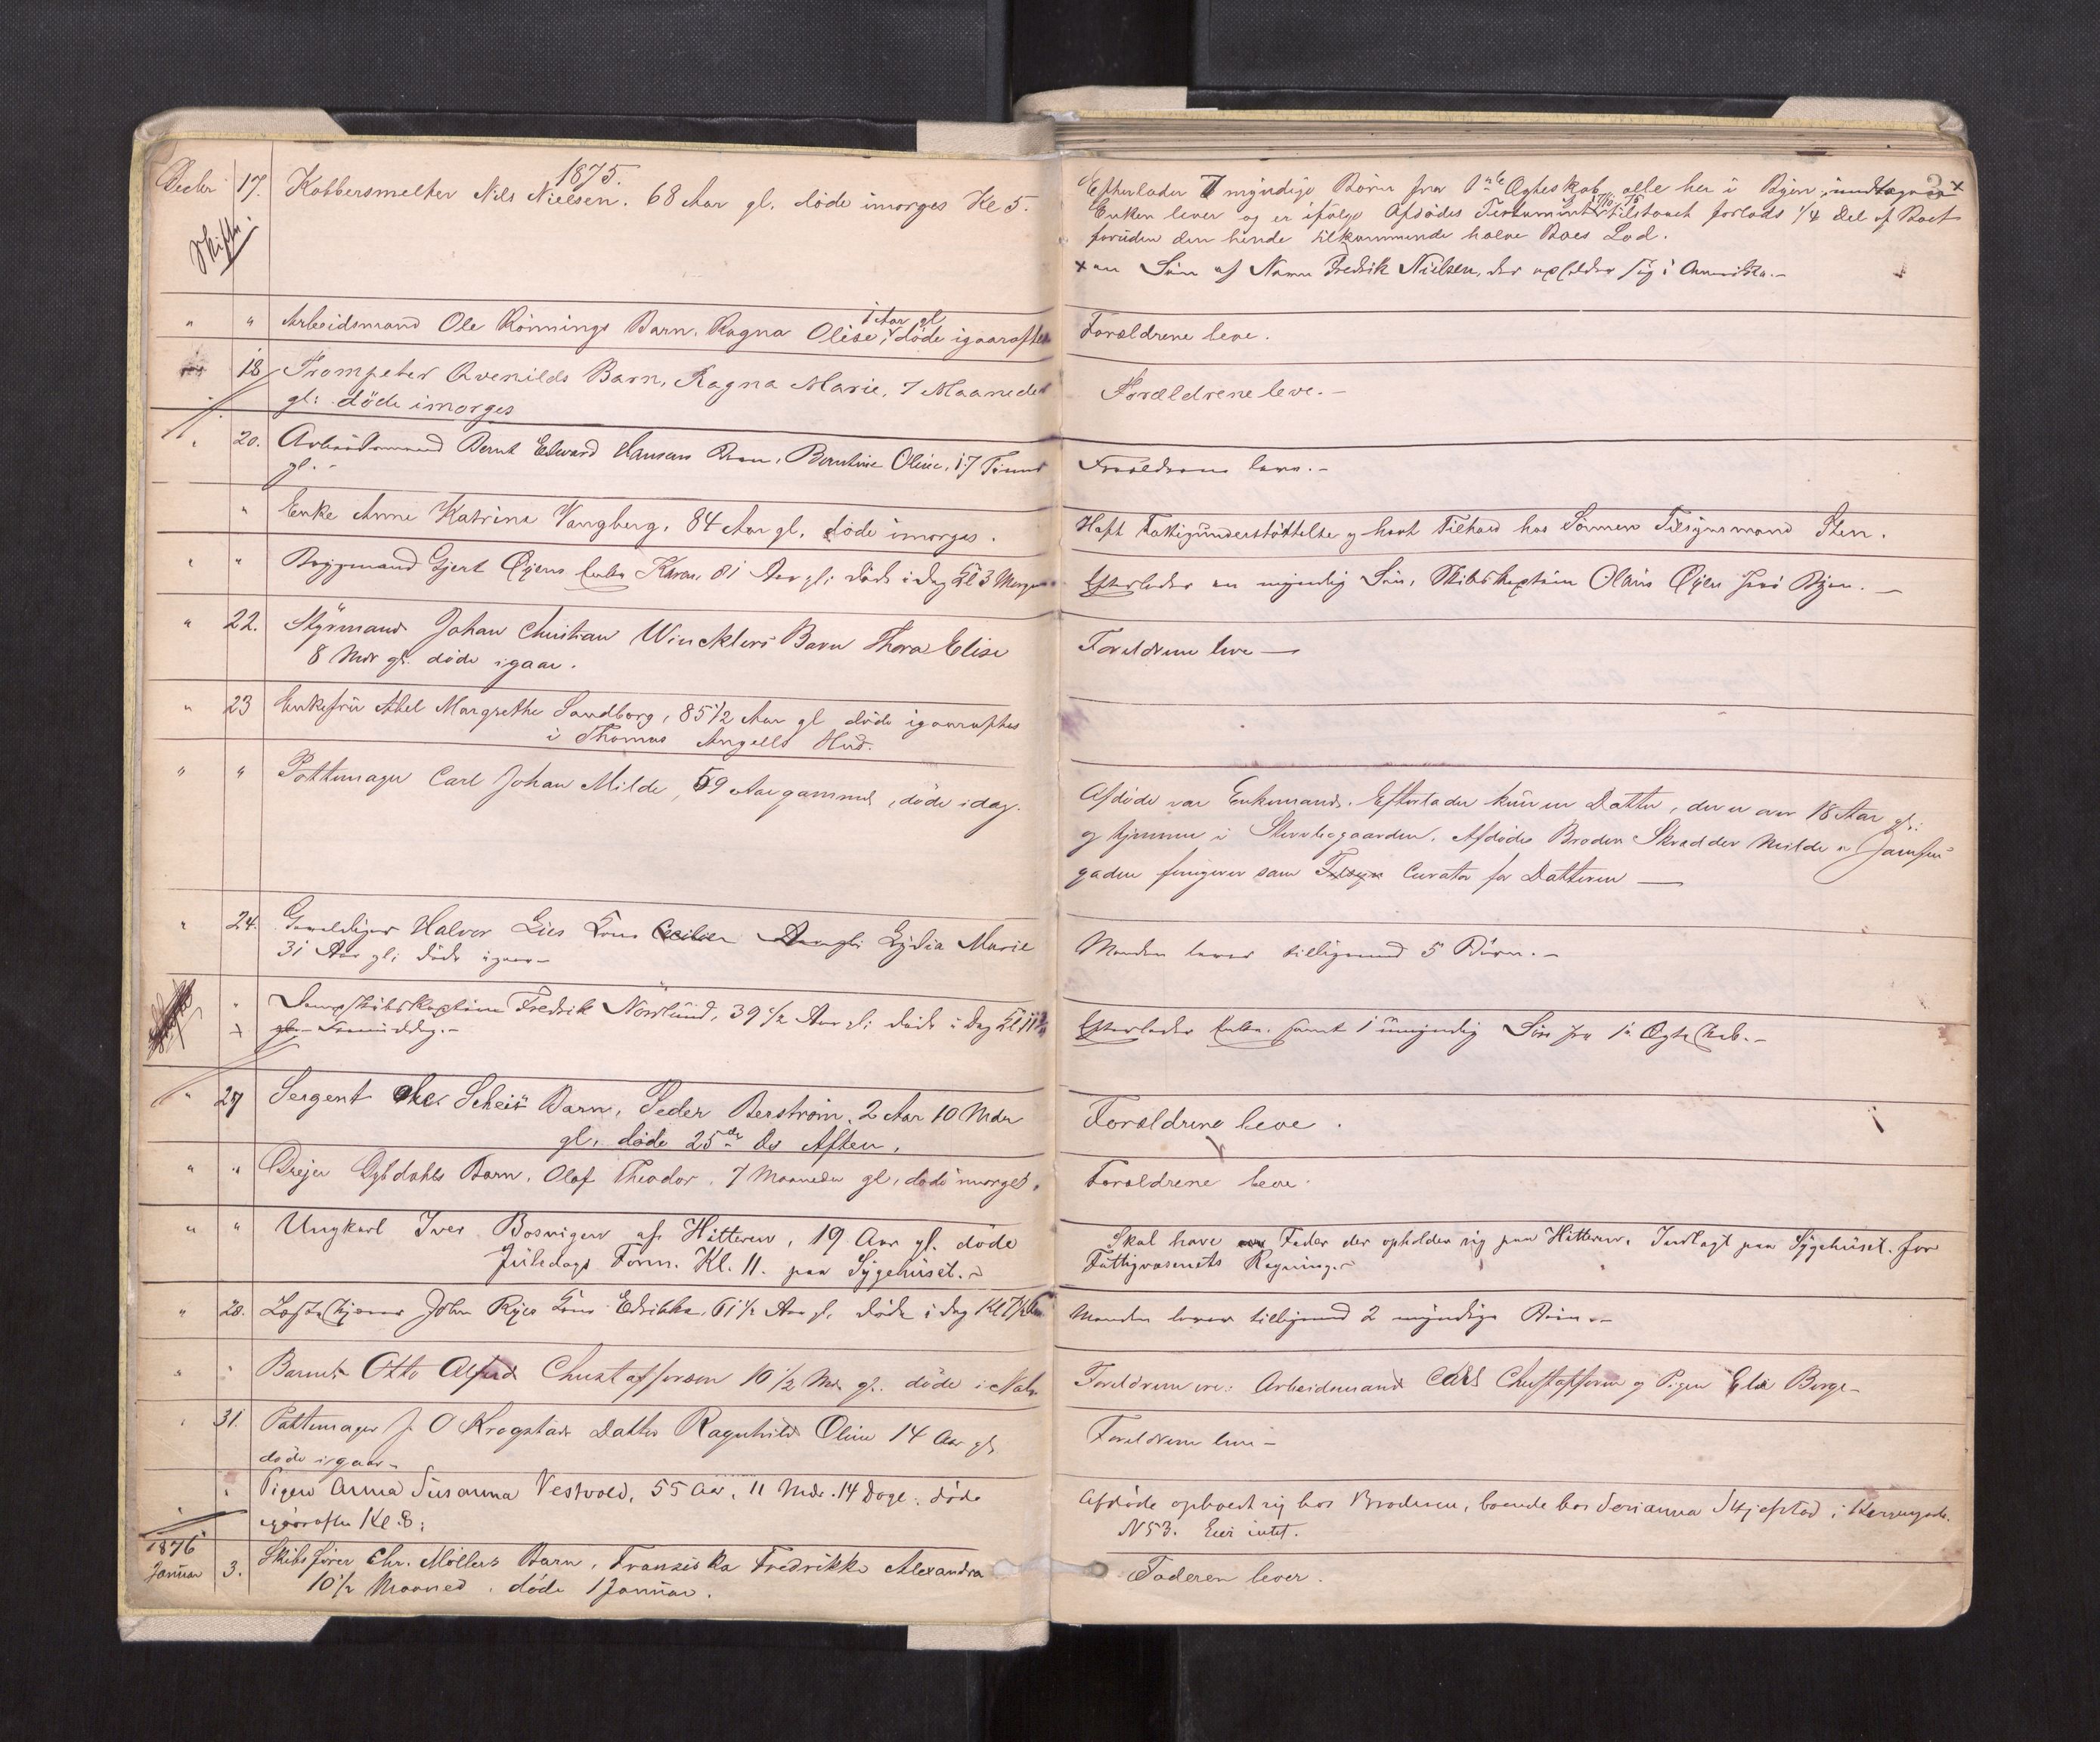 1875.
Decbr 17. Kobbersmelter Nils Nielsen. 68 Aar gl. döde imorges Kl 5.
Skifte
" " Arbeidsmand Ole Rönnings Barn, Ragna Olise, 1 Aar gl döde igaaraftes
18 Trompeter Qvenilds Barn, Ragna Marie, 7 Maaneder
gl: döde imorges
" 20. Arbeidsmand Bernt Edward Hansens Barn, Berntine Oline, 17 Timer
gl. -
" Enke Anne Katrine Vangberg, 84 Aar gl, döde imorges.
" " Byggmand Gjert Öyens Enke Karen, 81 Aar gl: döde i dag Kl 3 Morgen
" 22. Styrmand Johan Christian Wincklers Barn Thora Elise
8 Mdr gl. döde igaar.
" 23 Enkefrü Abel Margrethe Sandborg, 85 1/2 Aar gl döde igaaraftes
i Thomas Angells Hus.
" " Pottemager Carl Johan Milde, 59 Aar gammel, döde idag.
" 24. Halvor Lies Kone Lydia Marie
31 Aar gl; döde igaar -
" Dampskibskaptein Fredrik Nörlünd, 39 1/2 Aar gl; döde i dag Kl 11
Formiddag. -
" 27 Sergent Ole Scheis Barn, Peder Berström, 2 Aar 10 Mdr
gl, döde 25de ds Aften.
" " Drejer Dybdahls Barn, Olaf Theodor, 7 Maaneder gl, döde imorges.
" " Ungkarl Iver Bosvigen af Hitteren, 19 Aar gl. döde
Jüledags Form. Kl. 11. paa Sygehüset. -
" 28. John Ryes Kone Edrikke, 61 1/2 Aar gl, döde i dag Kl 7 1/2
" " Barnet Otto Alfred Chustafferson 10 1/2 Mdr gl. döde i Nat.
" 31. Pottemager J O Krogstads Datter Ragnhild Oline 14 Aar gl
döde igaar -
" Pigen Anna Süsanna Vestvold, 55 Aar, 11 Mdr. 14 Dage; döde
igaaraftes Kl 8;
1876
Januar 3. Skibsförer Chr. Möllers Barn, Franziska Fredrikke Alexandra
10 1/2 Maaned, döde 1 Januar.
3
Efterlader 7 myndige Börn fra 1ste Ægteskab, alle her i Byen, undtagen x
Enken lever og er ifölge Afdödes Testament tilstaaet forlods 1/4 Del af Boet
foruden den hende tilkommende halve Boes Lod.
x en Sön af Navn Fredrik Nielsen, der opholder sig i Amerika. -
Forældrene leve.
Forældrene leve. -
Forældrene leve. -
Haft Fattigünderstöttelse og havt Tilhold hos Sönnen Tilsynsmand Sten.
Efterlader en myndig Sön, Skibskaptein Olaüs Öyen her i Byen. -
Forældrene leve -
Afdöde var Enkemand. Efterlader kün en Datter, der er over 18 Aar gl:
og hjemme i Afdödes Broder Skrædder Milde i
gaden fungerer som Curator for Datteren -
Manden lever tilligemed 5 Börn. -
Efterlader Enke samt 1 ümyndig Sön fra 1e Ægteskab. -
Forældrene leve.
Forældrene leve.
Skal have Fader der opholder sig paa Hitteren. Indlagt paa Sygehüset for
Fattigvæsenets Regning. -
Manden lever tilligemed 2 myndige Börn. -
Forældrene ere: Arbeidsmand Carl Chustafferson og Pigen Berge -
Forældrene leve -
Afdöde opholdt sig hos Broderen, boende hos Serianna Skjefstad i
N 53. Eier intet.
Faderen lever.